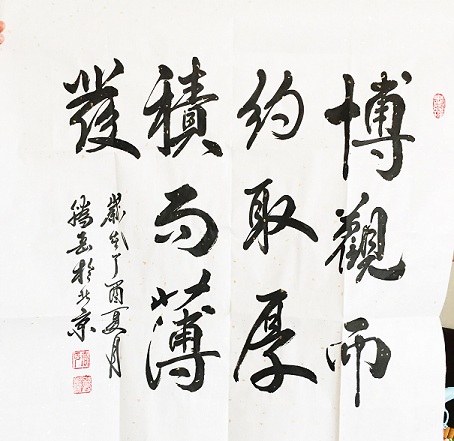 博觀而
約取厚
積而薄
發
歲在丁酉夏月
於北京